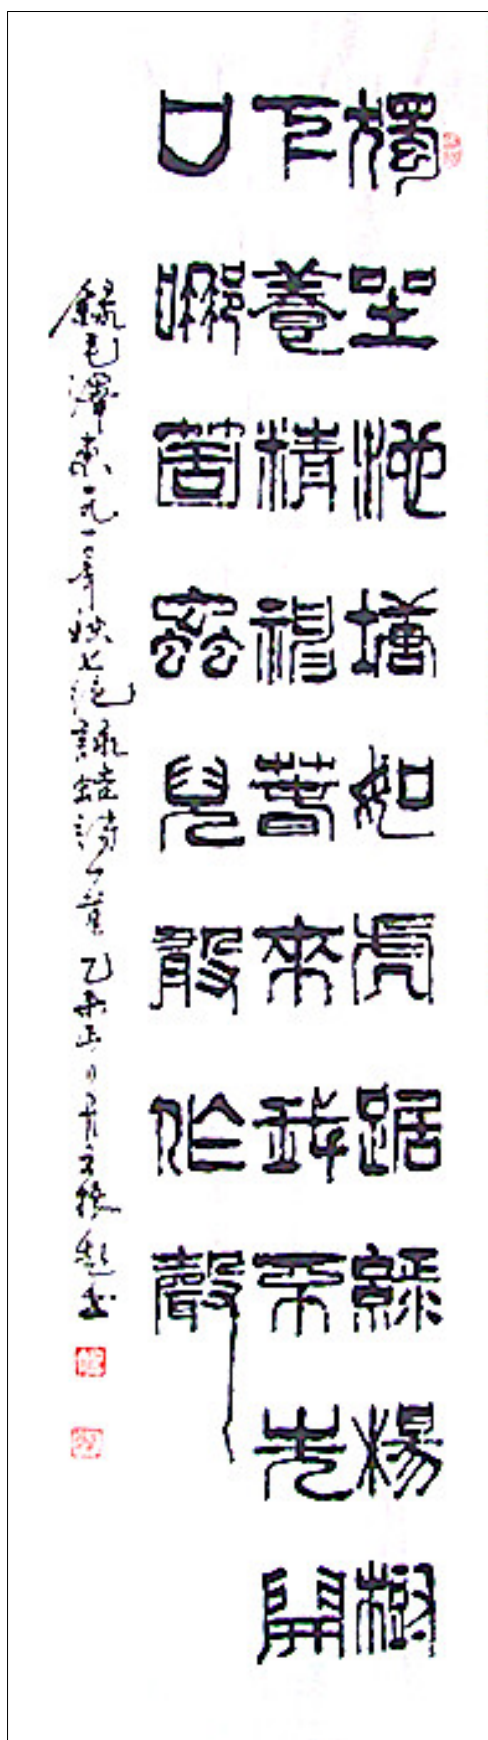 獨坐池塘如虎踞綠楊樹
下養精神春來我不先開
口哪箇蟲兒敢作聲
錄毛澤東一九一〇年秋七絕詠蛙詩一首乙未書